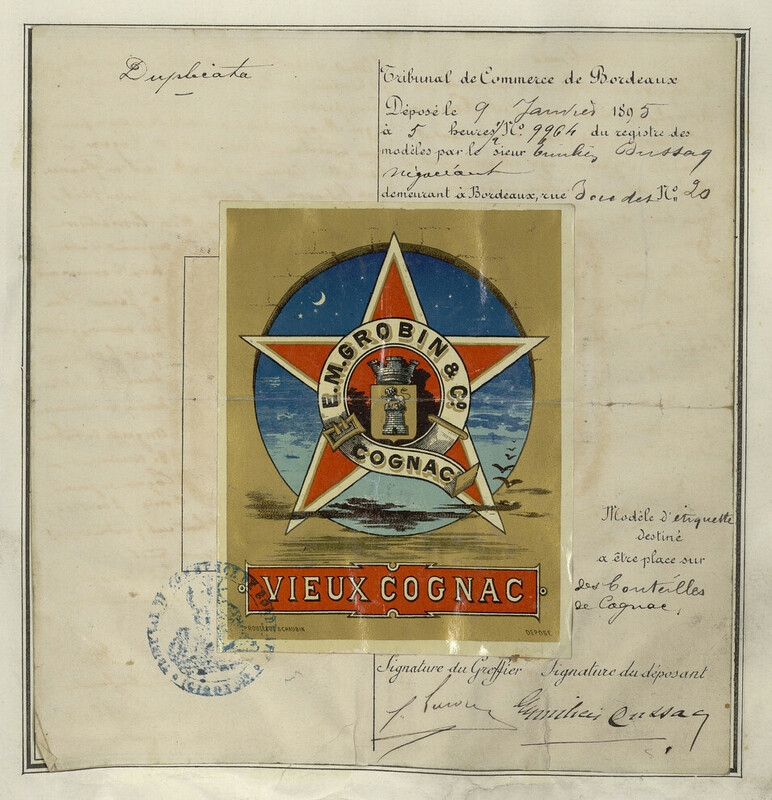 Duplicata
Tribunal de Commerce de Bordeaux
Déposé le 9 Janvier 1895
à 5 heures 1/2 N.º 9964 du registre des
modèles par le sieur
négociant
demeurant à Bordeaux, rue N.º 20
E. M. GROBIN & Cº.
COGNAC
VIEUX COGNAC
DÉPOSÉ
Modèle d'étiquette
destiné
a être place sur
des bouteilles
de Cognac,
TRIBUNAL DE COMMERCE DE BORDEAUX
Signature du Greffier
Signature du déposant